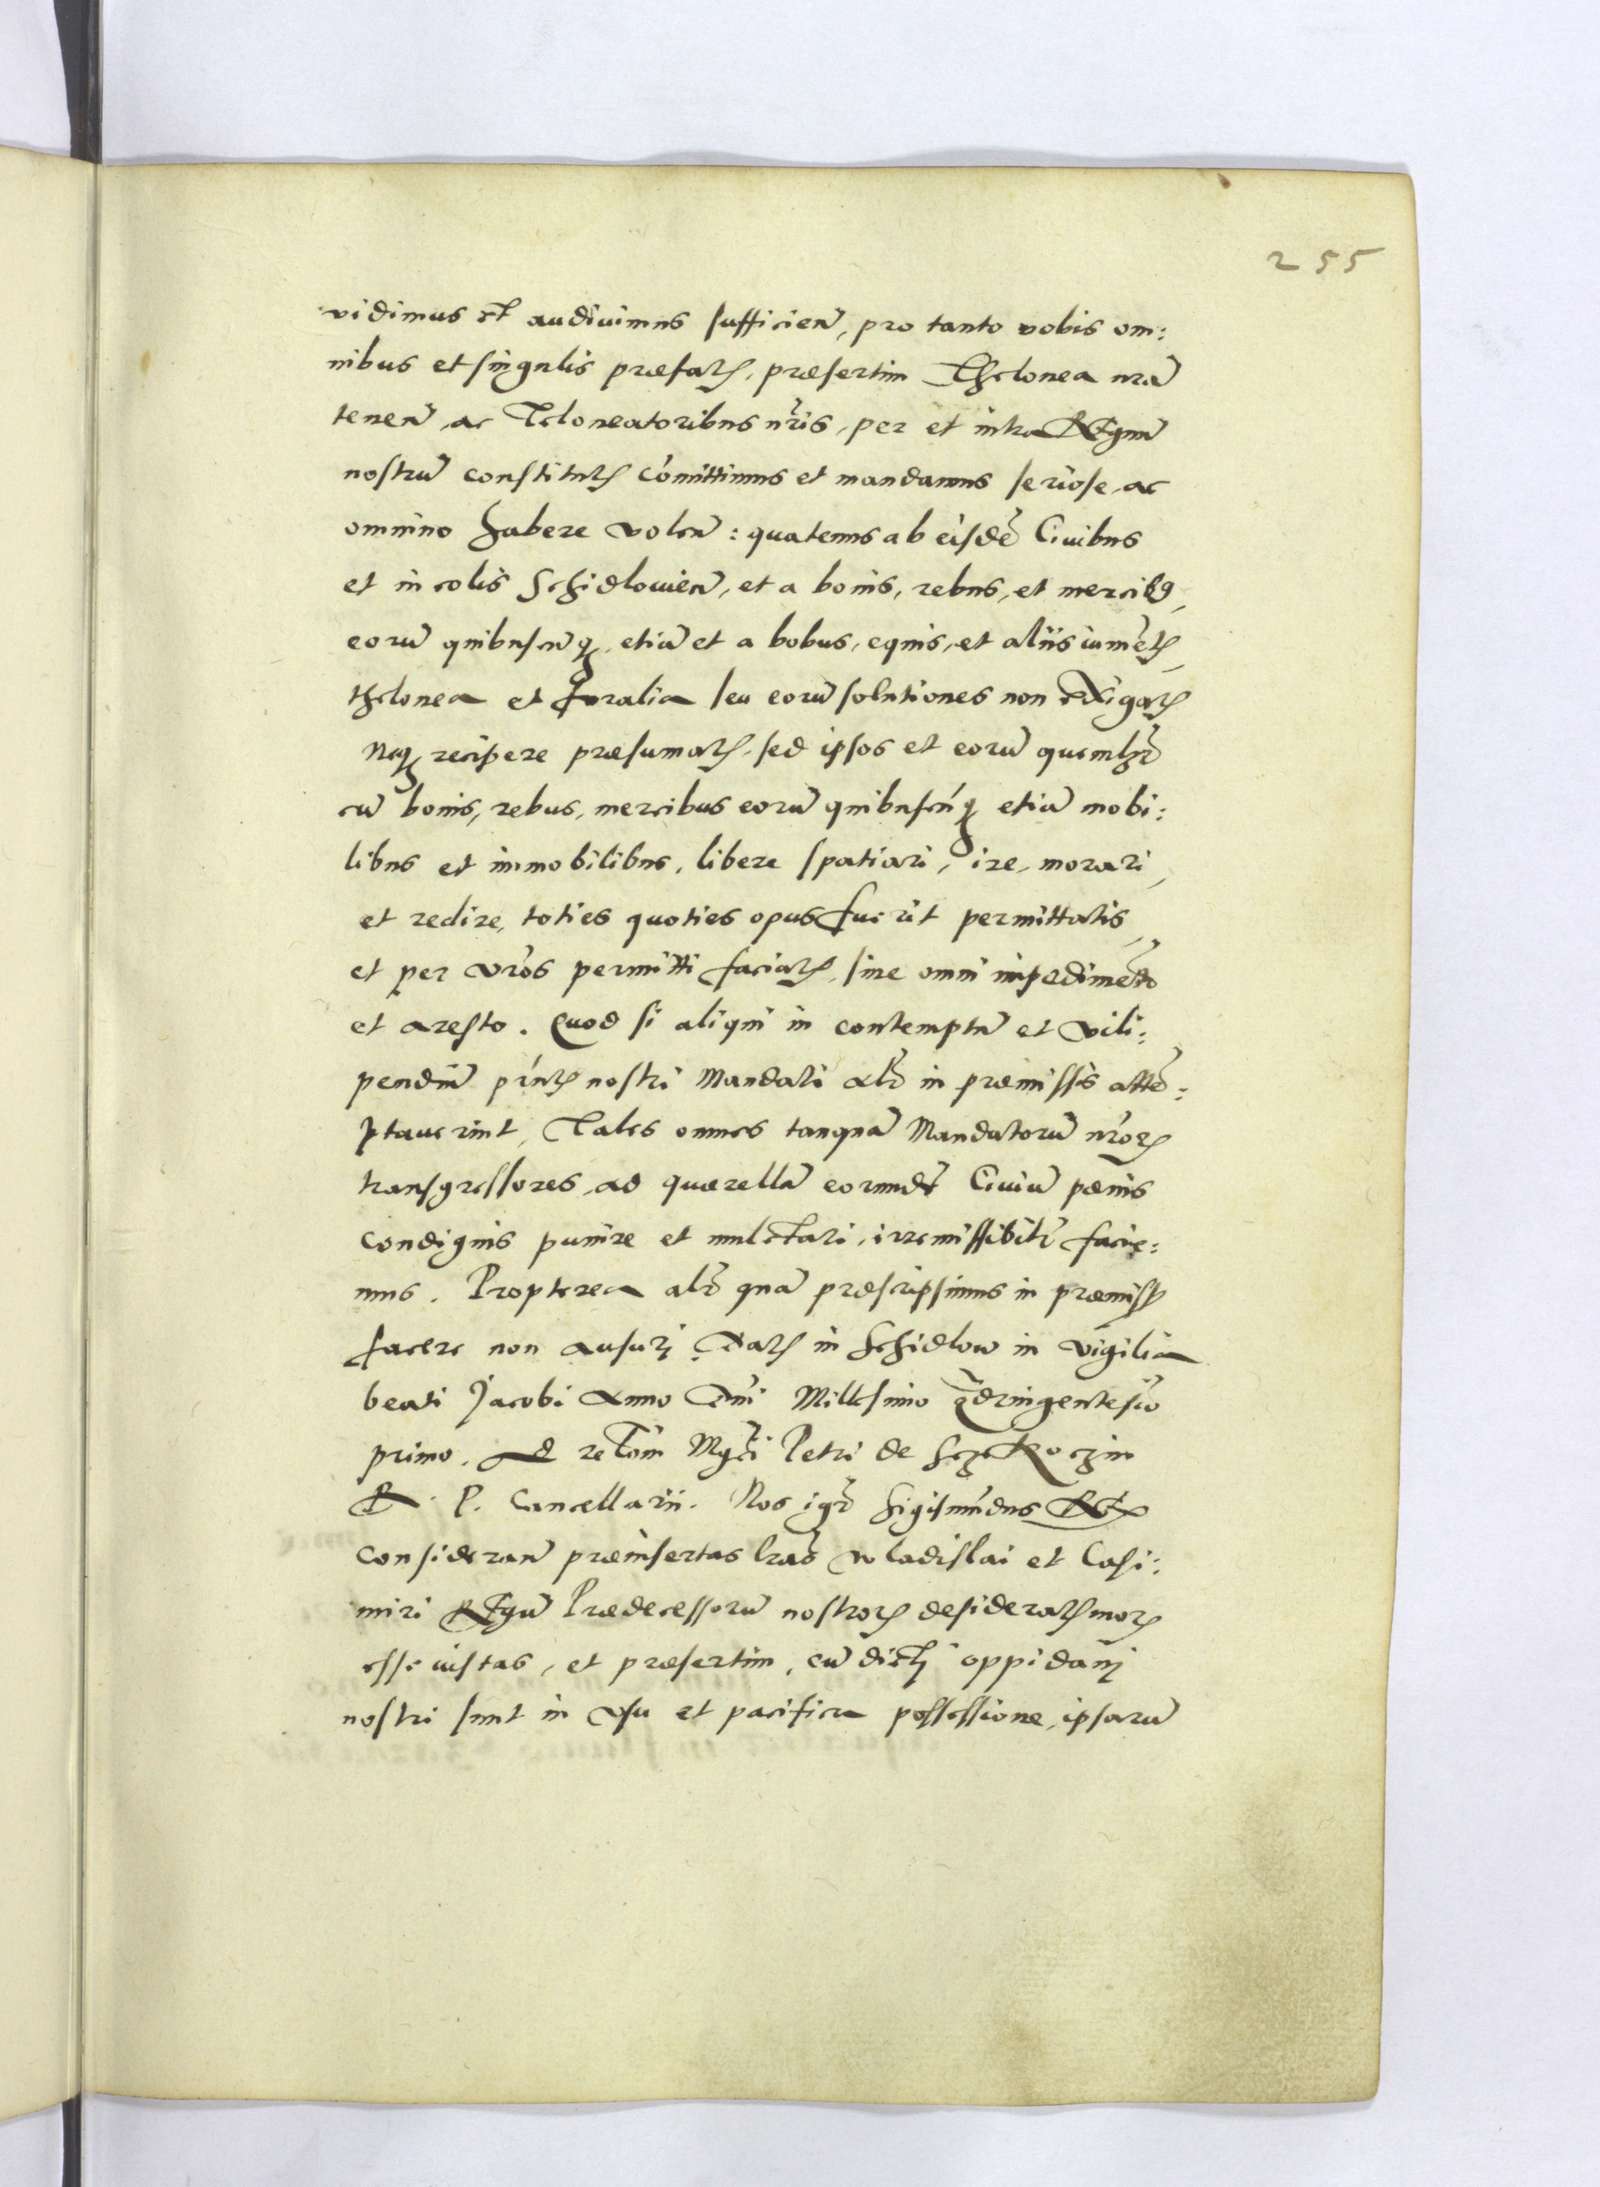 255
vidimus et audivimus sufficien̄, pro tanto vobis om:
nibus et singulis præfatꝭ, præsertim Thelonea nr̄a
tenen̄, ac Teloneatoribus nr̄is, per et intra Regnū
nostrū constitutꝭ com̄ittimus et mandamus seriose, ac
omnino habere volen̄: quatenus ab eisdē Civibus
et incolis Schidlovien̄, et a bonis, rebus, et mercibꝰ,
eorū quibuscūqꝫ, etiā et a bobus, equis, et aliis iumētꝭ,
thelonea et foralia seu eorū solutiones non exigatꝭ
Neqꝫ recipere præsumatꝭ, sed ipsos et eorū quemlꝫt
cū bonis, rebus, mercibus eorū quibuscūqꝫ etiā mobi:
libus et immobilibus, libere spatiari, ire, morari,
et redire, toties quoties opus fuerit permittatis,
et per vr̄os permitti faciatꝭ, sine omni impedimēto
et aresto. Quod si aliqui in contemptū et vili:
pendiū pn̄tꝭ nostri Mandati alr̄ in præmissis attē:
ptaverint, Tales omnes tanquā Mandatorū nr̄orꝭ
transgressores, ad quærellā eorundē Civiū pænis
condignis punire et mulctari, irremissibilr̄ facie:
mus. Propterea alr̄ quā præscripsimus in præmissꝭ
facere non ausuri, Datꝭ in Schidlow in vigilia
beati Jacobi Anno Dn̄i Millesimo q̄dringentesīo
primo. Ad relōm Mgci Petri de Sczekoczin
R. P. Cancellarii. Nos igr̄ Sigismūdus Rex
consideran̄ præinsertas lr̄as Wladislai et Casi:
miri Regū Prædecessorū nostrorꝭ desideratꝭmorꝭ
esse iustas, et præsertim, cū dicti oppidani
nostri sunt in usu et pacifica possessione, ipsarū